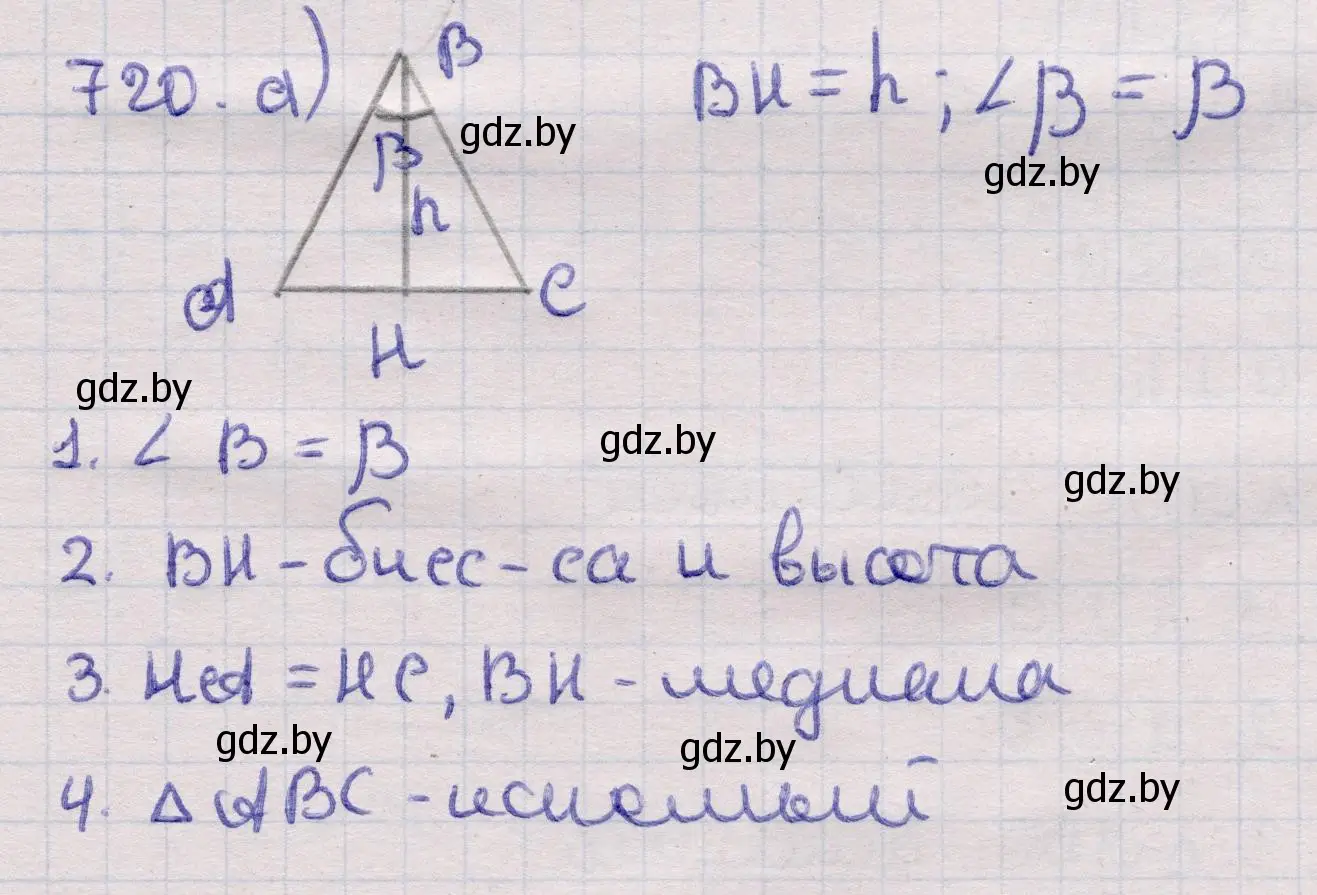 720. а)
B
BH = h; ∠β = β
gdz.by
gdz.by
β
h
A
C
H
gdz.by
1. ∠ B = β
gdz.by
gdz.by
2. BH - бисс-са и высота
3. HA = HC, BH - медиана
gdz.by
gdz.by
4. Δ ABC - искомый
gdz.by